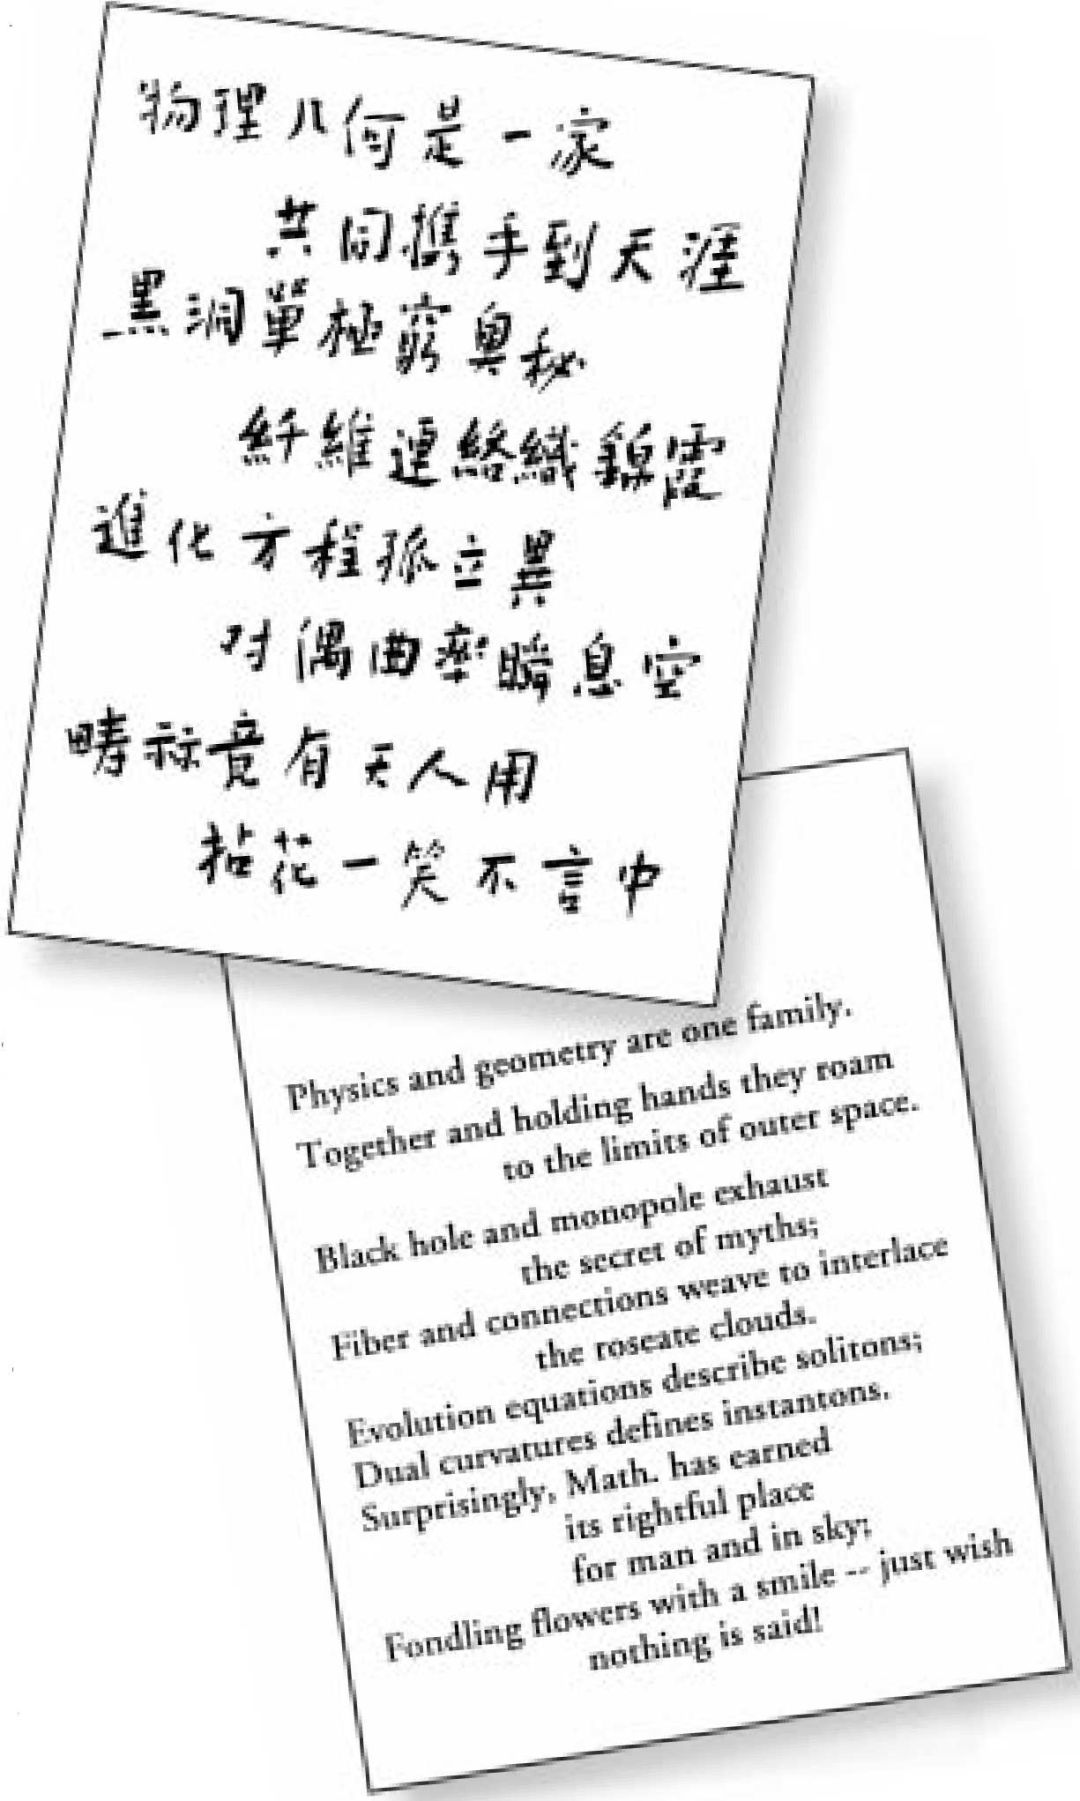 物理几何是一家
共同攜手到天涯
黑洞單極窮奧秘
纤維連絡織錦霞
進化方程孤立異
对偶曲率瞬息空
疇祘竟有天人用
拈花一笑不言中
Physics and geometry are one family.
Together and holding hands they roam
to the limits of outer space.
Black hole and monopole exhaust
the secret of myths;
Fiber and connections weave to interlace
the roseate clouds.
Evolution equations describe solitons;
Dual curvatures defines instantons.
Surprisingly, Math. has earned
its rightful place
for man and in sky;
Fondling flowers with a smile -- just wish
nothing is said!